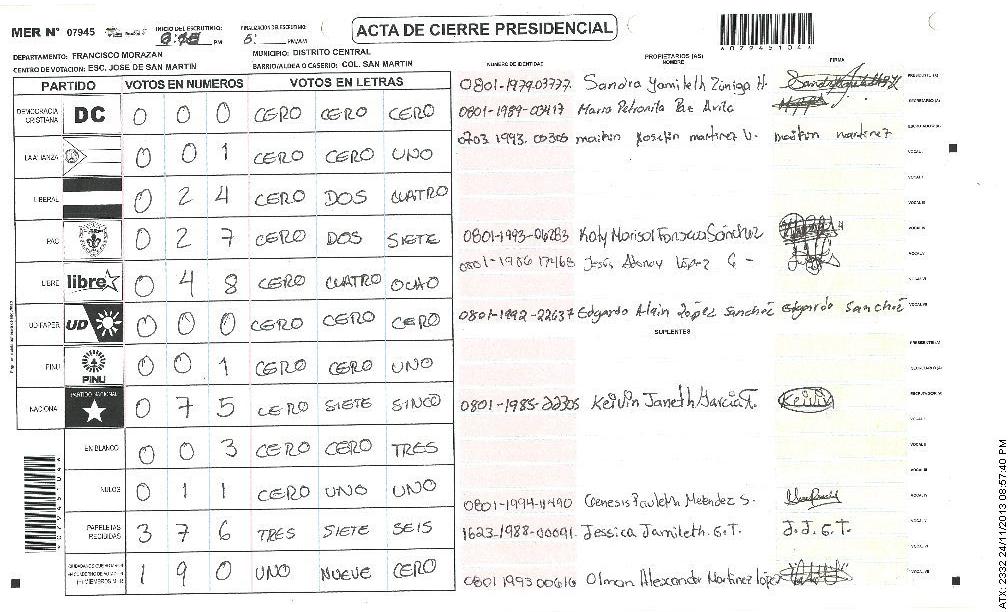 MER Nº 07945 INICIO DEL ESCRUTINIO: PM FINALIZACION DEL ESCRUTINIO: 5: PM/AM ACTA DE CIERRE PRESIDENCIAL
DEPARTAMENTO: FRANCISCO MORAZAN MUNICIPIO: DISTRITO CENTRAL
CENTRO DE VOTACION: ESC. JOSE DE SAN MARTIN BARRIO/ALDEA O CASERIO: COL. SAN MARTIN
NUMERO DE IDENTIDAD PROPIETARIOS (AS) NOMBRE FIRMA
PARTIDO VOTOS EN NUMEROS VOTOS EN LETRAS
0801-1979-03777 Sandra Yamileth Zuniga H. PRESIDENTE (A)
DEMOCRACIA CRISTIANA DC 0 0 0 CERO CERO CERO
0801-1989-03417 Maria Petronila Paz Avila SECRETARIO (A)
0703 1993. 00305 maikin Joselin martinez V. maikin martinez ESCRUTADOR (A)
LA ALIANZA 0 0 1 CERO CERO UNO VOCAL I
LIBERAL 0 2 4 CERO DOS CUATRO
PAC 0 2 7 CERO DOS SIETE
0801-1993-06283 Katy Marisol Fonseca Sánchez
0801-1986 17468 Jesús López G
LIBRE libre 0 4 8 CERO CUATRO OCHO
0801-1992-22637 Edgardo Alain López Sanchéz Edgardo Sanchéz
UD-FAPER UD 0 0 0 CERO CERO CERO
SUPLENTES
PRESIDENTE (A)
PINU PINU 0 0 1 CERO CERO UNO
SECRETARIO (A)
NACIONAL PARTIDO NACIONAL 0 7 5 CERO SIETE SINCO
0801-1985-22305 Keivin Janeth Garcia T. Keivin ESCRUTADOR (A)
EN BLANCO 0 0 3 CERO CERO TRES
NULOS 0 1 1 CERO UNO UNO
0801-1994-11490 Genesis Pauleth Melendez S.
PAPELETAS RECIBIDAS 3 7 6 TRES SIETE SEIS
1623-1988-00091 Jessica Jamileth. G.T. J.J.G.T.
1 9 0 UNO NUEVE CERO
0801 1993 00616 Olman Alexander Martinez lópez
ATX: 2332 24/11/2013 08:57:40 PM